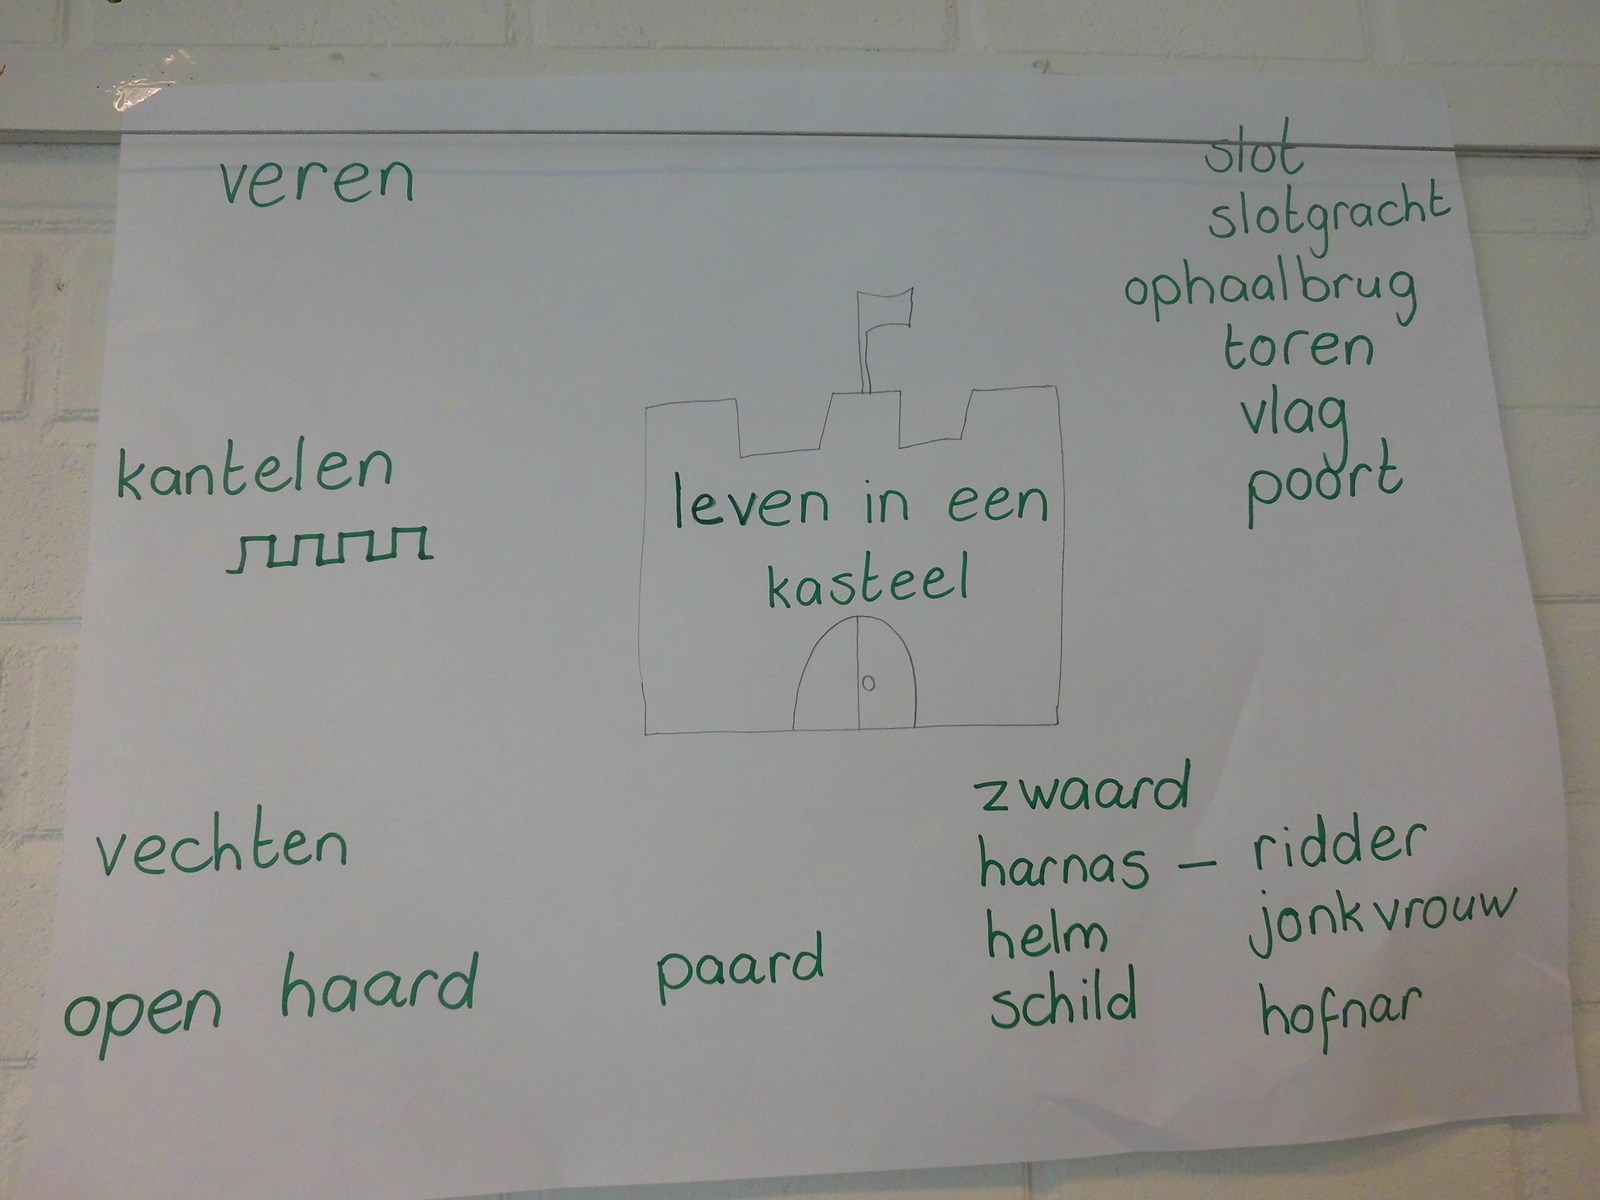 veren
slot
slotgracht
ophaalbrug
toren
vlag
poort
kantelen
leven in een
kasteel
zwaard
harnas – ridder
helm
jonkvrouw
schild
hofnar
vechten
open haard
paard